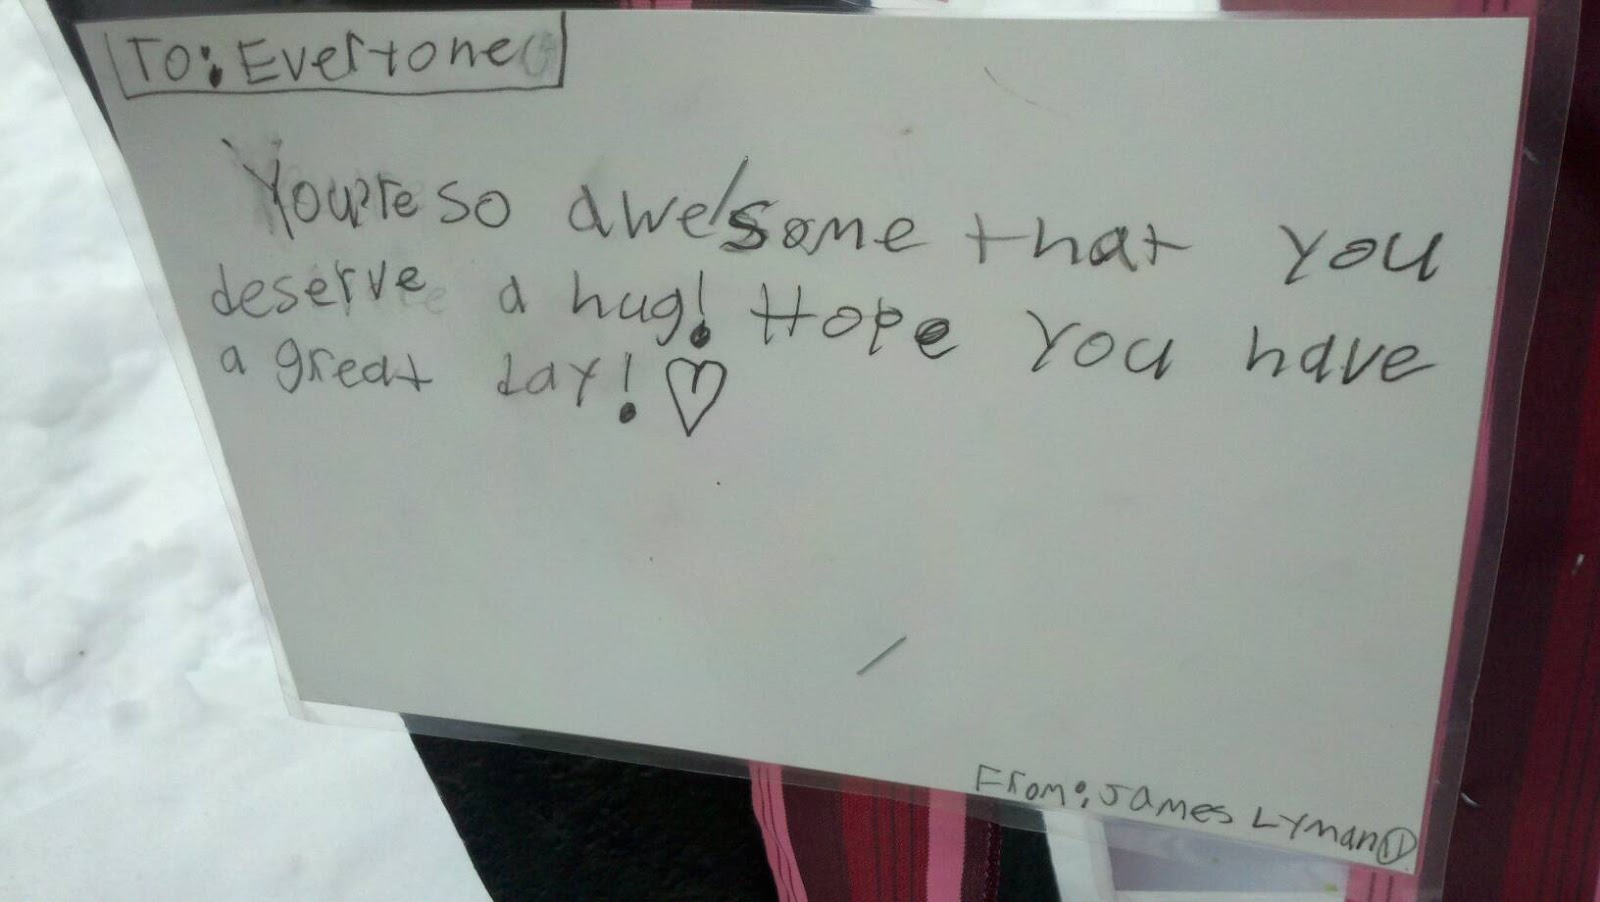 To: Everyone
You're so awesome that you
deserve a hug! Hope you have
a great day! ♡
From: James Lyman